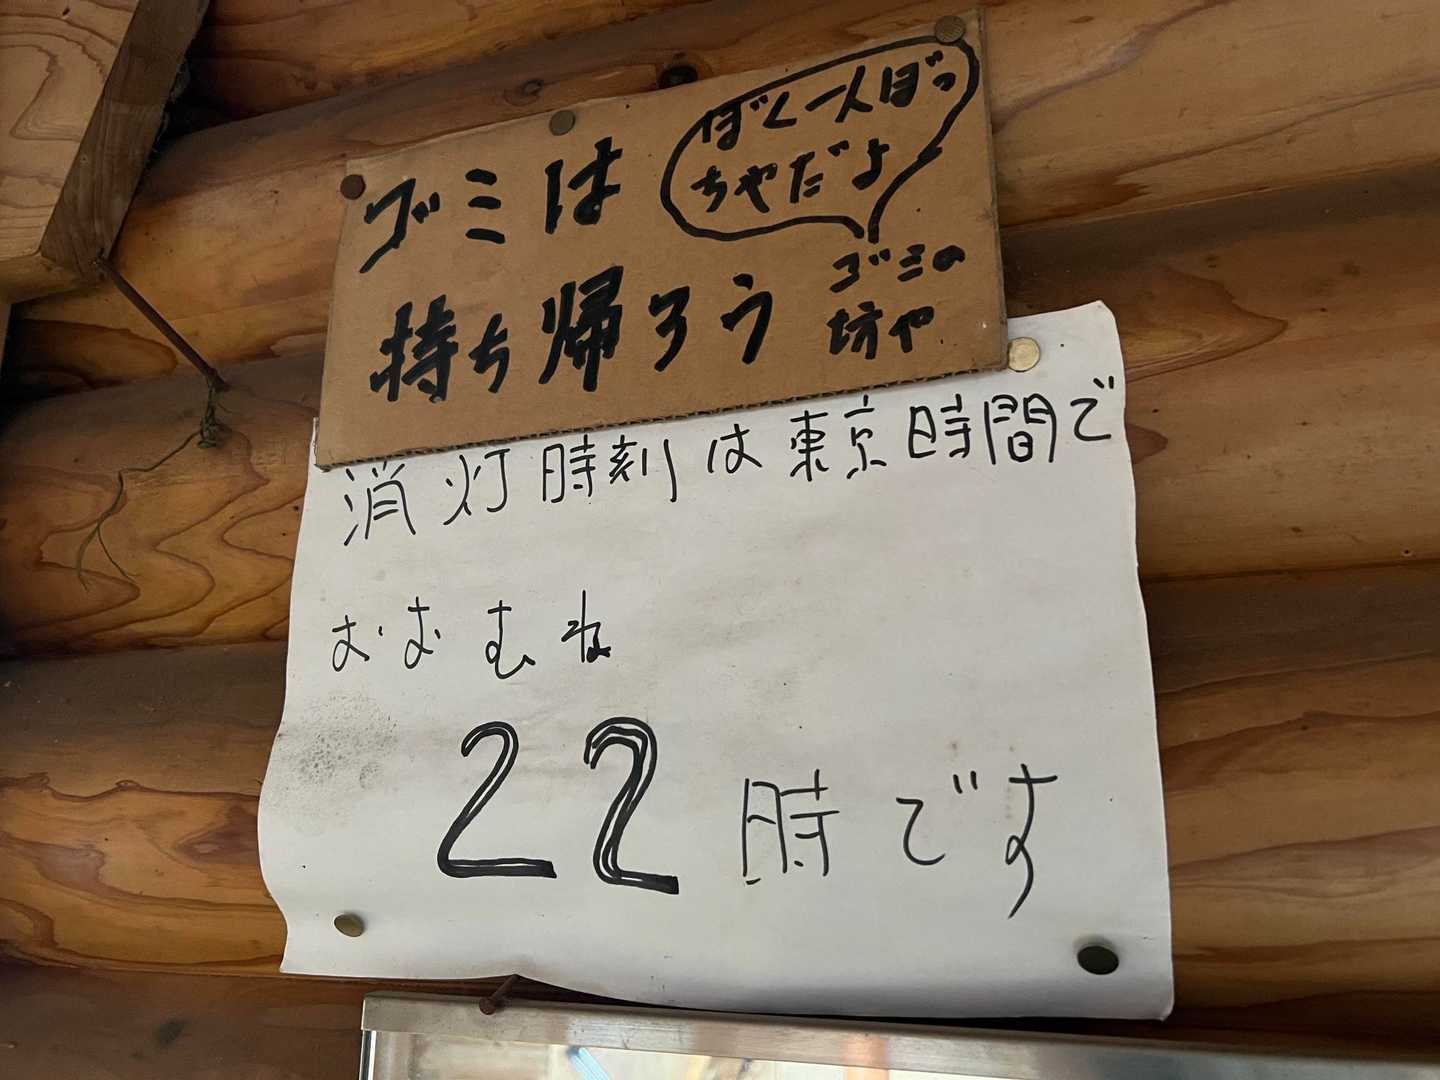 ゴミは
持ち帰ろう
ぼく一人ぼっ
ちやだよ
ゴミの
坊や
消灯時刻は東京時間で
おおむね
22時です